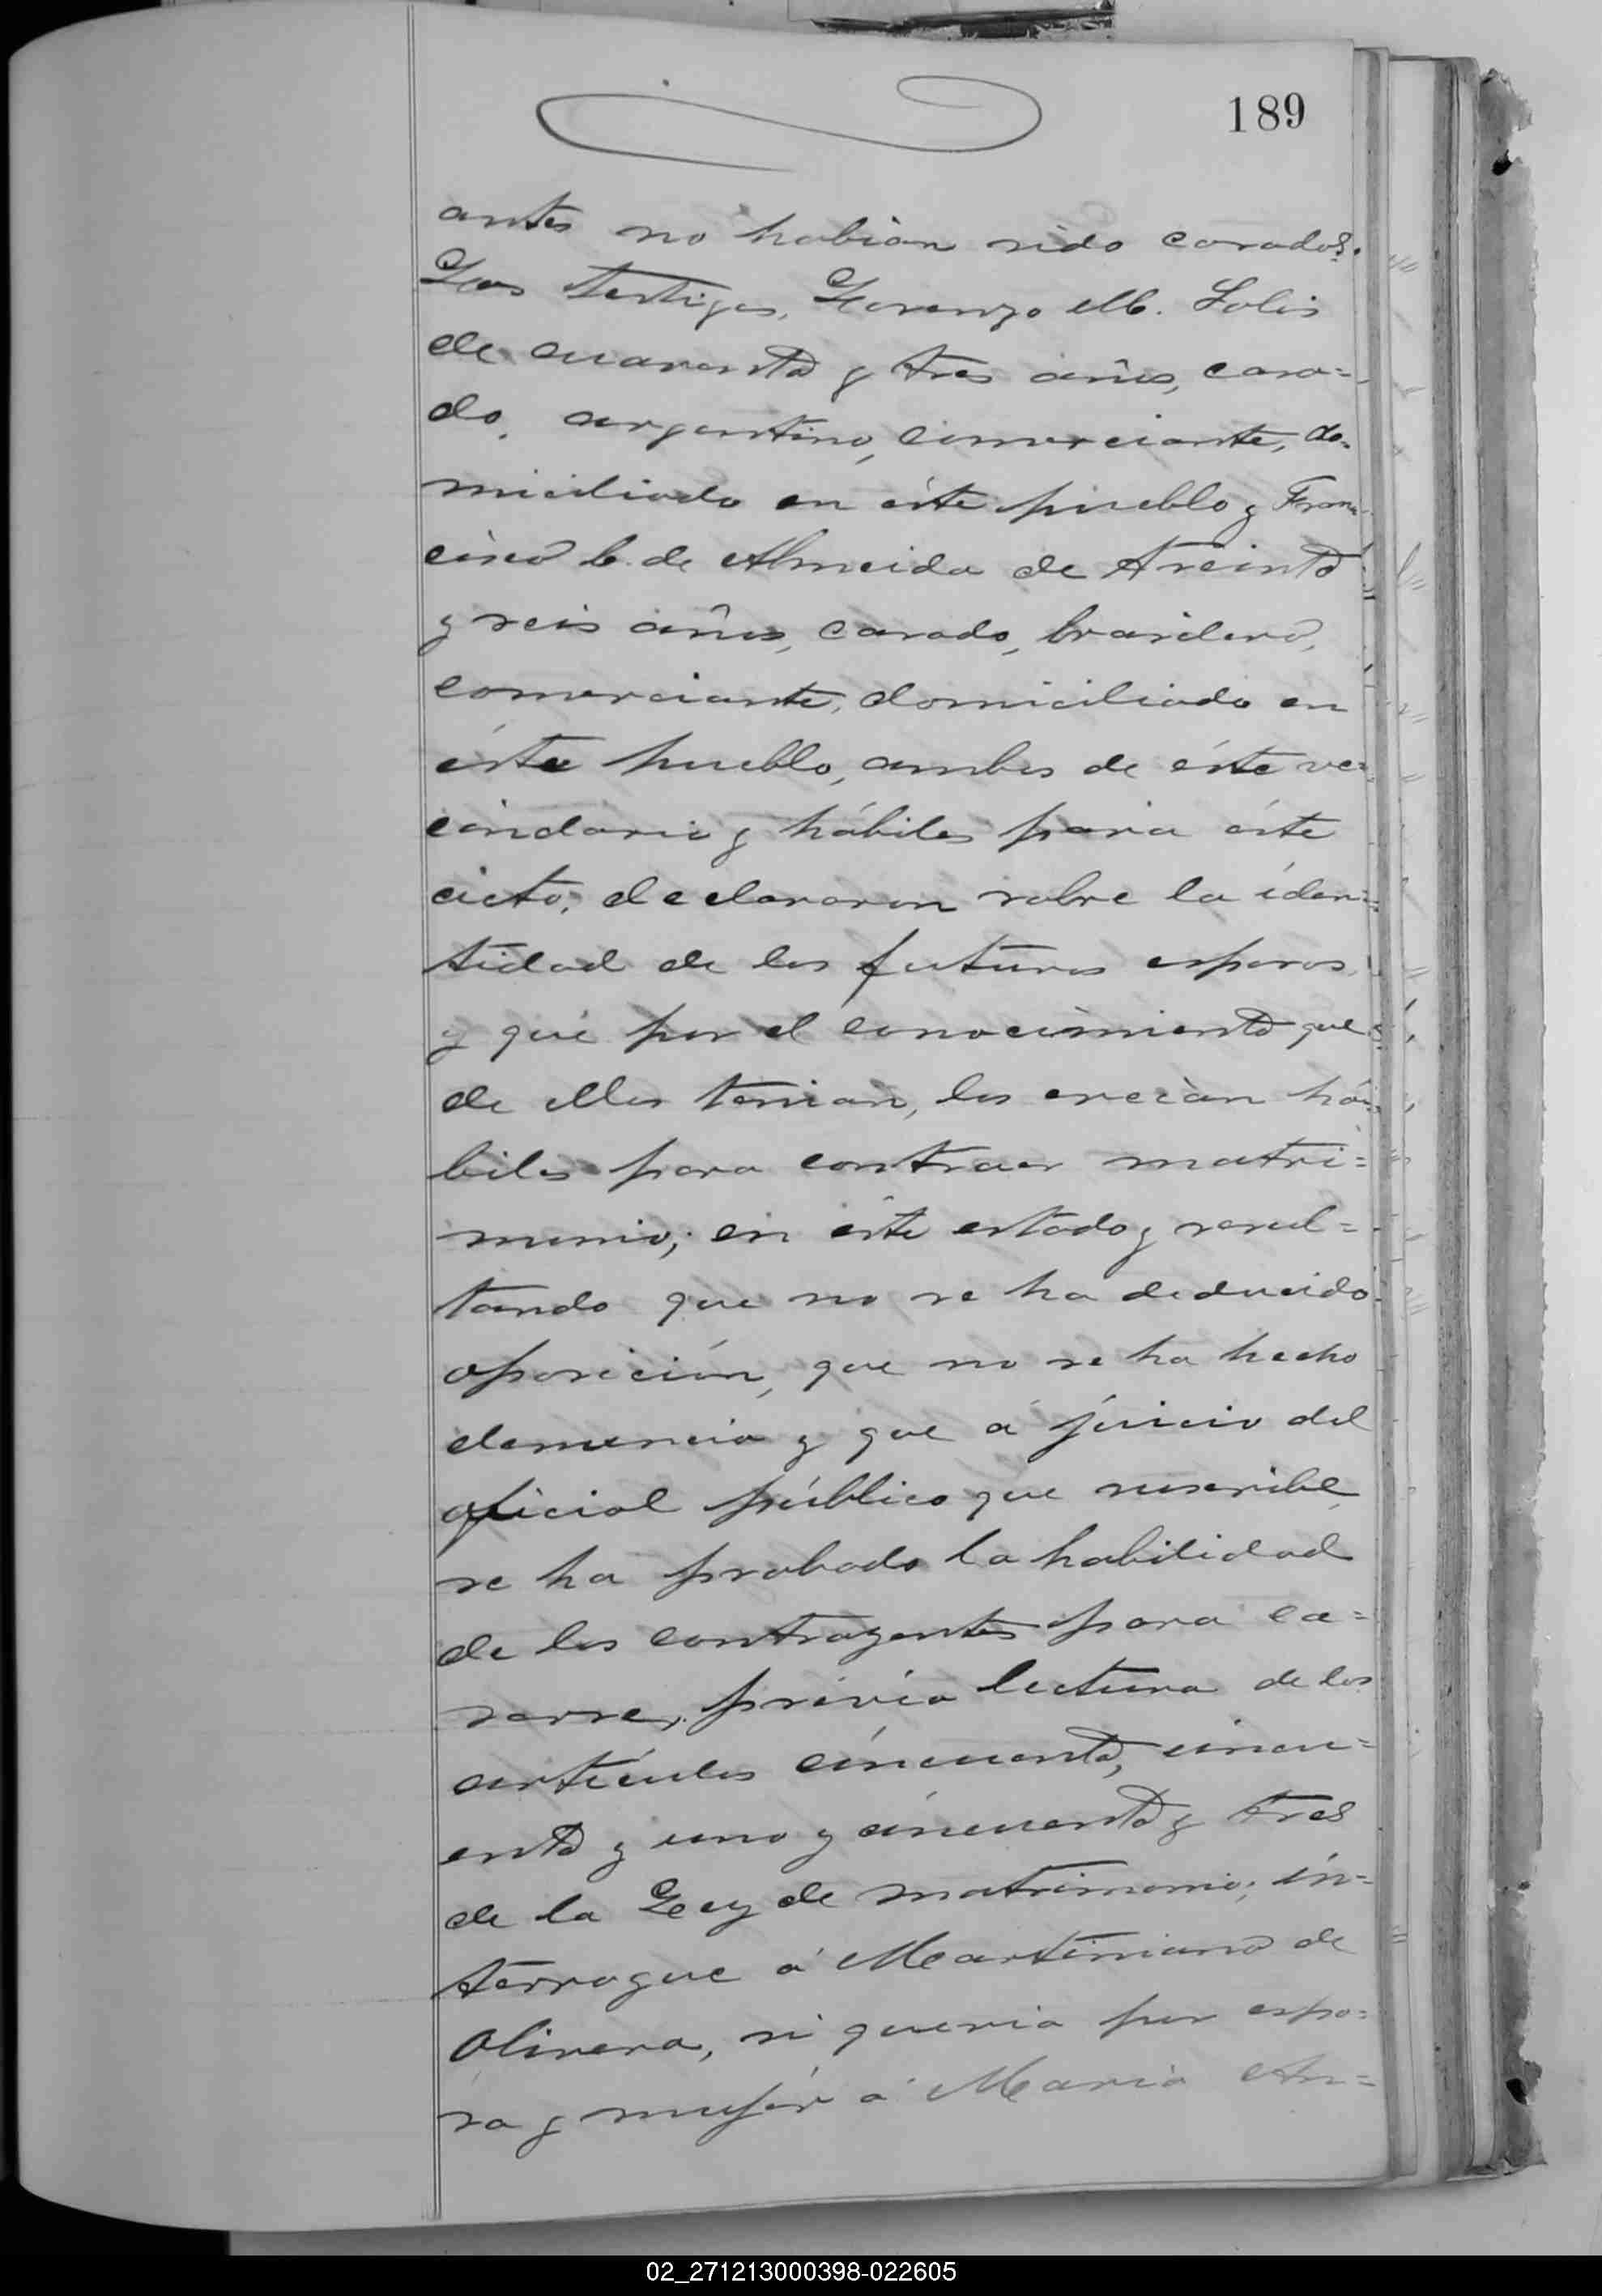 189
antes no habían sido casados.
Los testigos, Lorenzo M. Solis
de cuarenta y tres años, casa=
do, argentino, comerciante, do=
miciliado en éste pueblo y Fran=
cisco C. de Almeida de treinta
y seis años, casado, brasilero,
comerciante, domiciliado en
éste pueblo, ambos de éste ve=
cindario y hábiles para éste
acto, declararon sobre la iden=
tidad de los futuros esposos
y que por el conocimiento que
de ellos tenian, los creian há=
biles para contraer matri=
monio; en éste estado y resul=
tando que no se ha deducido
oposición, que no se ha hecho
denuncia y que á juicio del
oficial público que suscribe
se ha probado la habilidad
de los contrayentes para ca=
sarse, prévia lectura de los
artículos cincuenta, cincu=
enta y uno y cincuenta y tres
de la Ley de matrimonio; in=
terrogue á Martiniano de
Olivera, si queria por espo=
sa y mujer á Maria An=
02_271213000398-022605